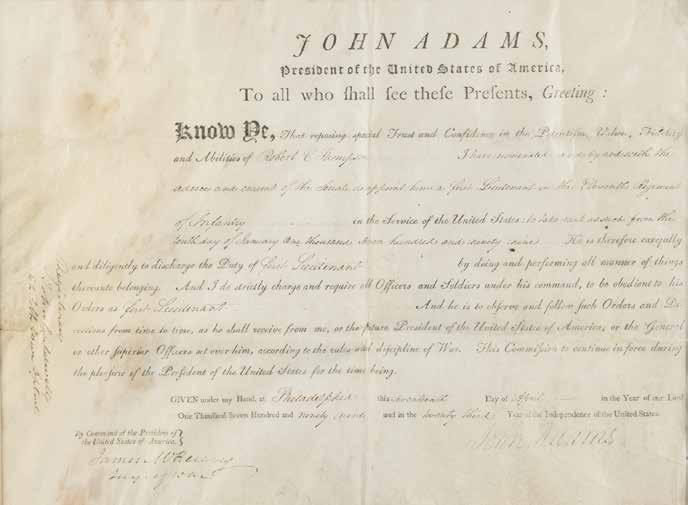 JOHN ADAMS,
President of the United States of America,
To all who ſhall ſee theſe Preſents, Greeting:
Know Ye, That repoſing ſpecial Truſt and Confidence in the Patriotiſm, Valour, Fidelity
and Abilities of Robert C I have nominated and by and with the
advice and conſent of the Senate do appoint him a firſt Lieutenant in the Eleventh Regiment
of Infantry in the Service of the United States: to take rank as ſuch from the
tenth day of January One thouſand ſeven hundred and ninety nine. He is therefore carefully
and diligently to diſcharge the Duty of firſt Lieutenant by doing and performing all manner of things
thereunto belonging. And I do ſtrictly charge and require all Officers and Soldiers under his command, to be obedient to his
Orders as firſt Lieutenant And he is to obſerve and follow ſuch Orders and Di-
rections from time to time, as he ſhall receive from me, or the future Preſident of the United States of America, or the General
or other ſuperior Officers ſet over him, according to the rules and diſcipline of War. This Commiſſion to continue in force during
the pleaſure of the Preſident of the United States for the time being.
GIVEN under my Hand, at Philadelphia this Day of April in the Year of our Lord
One Thouſand Seven Hundred and ninety nine and in the twenty third Year of the Independence of the United States.
By Command of the Preſident of
the United States of America,
John Adams
James McHenry
Secy. of War